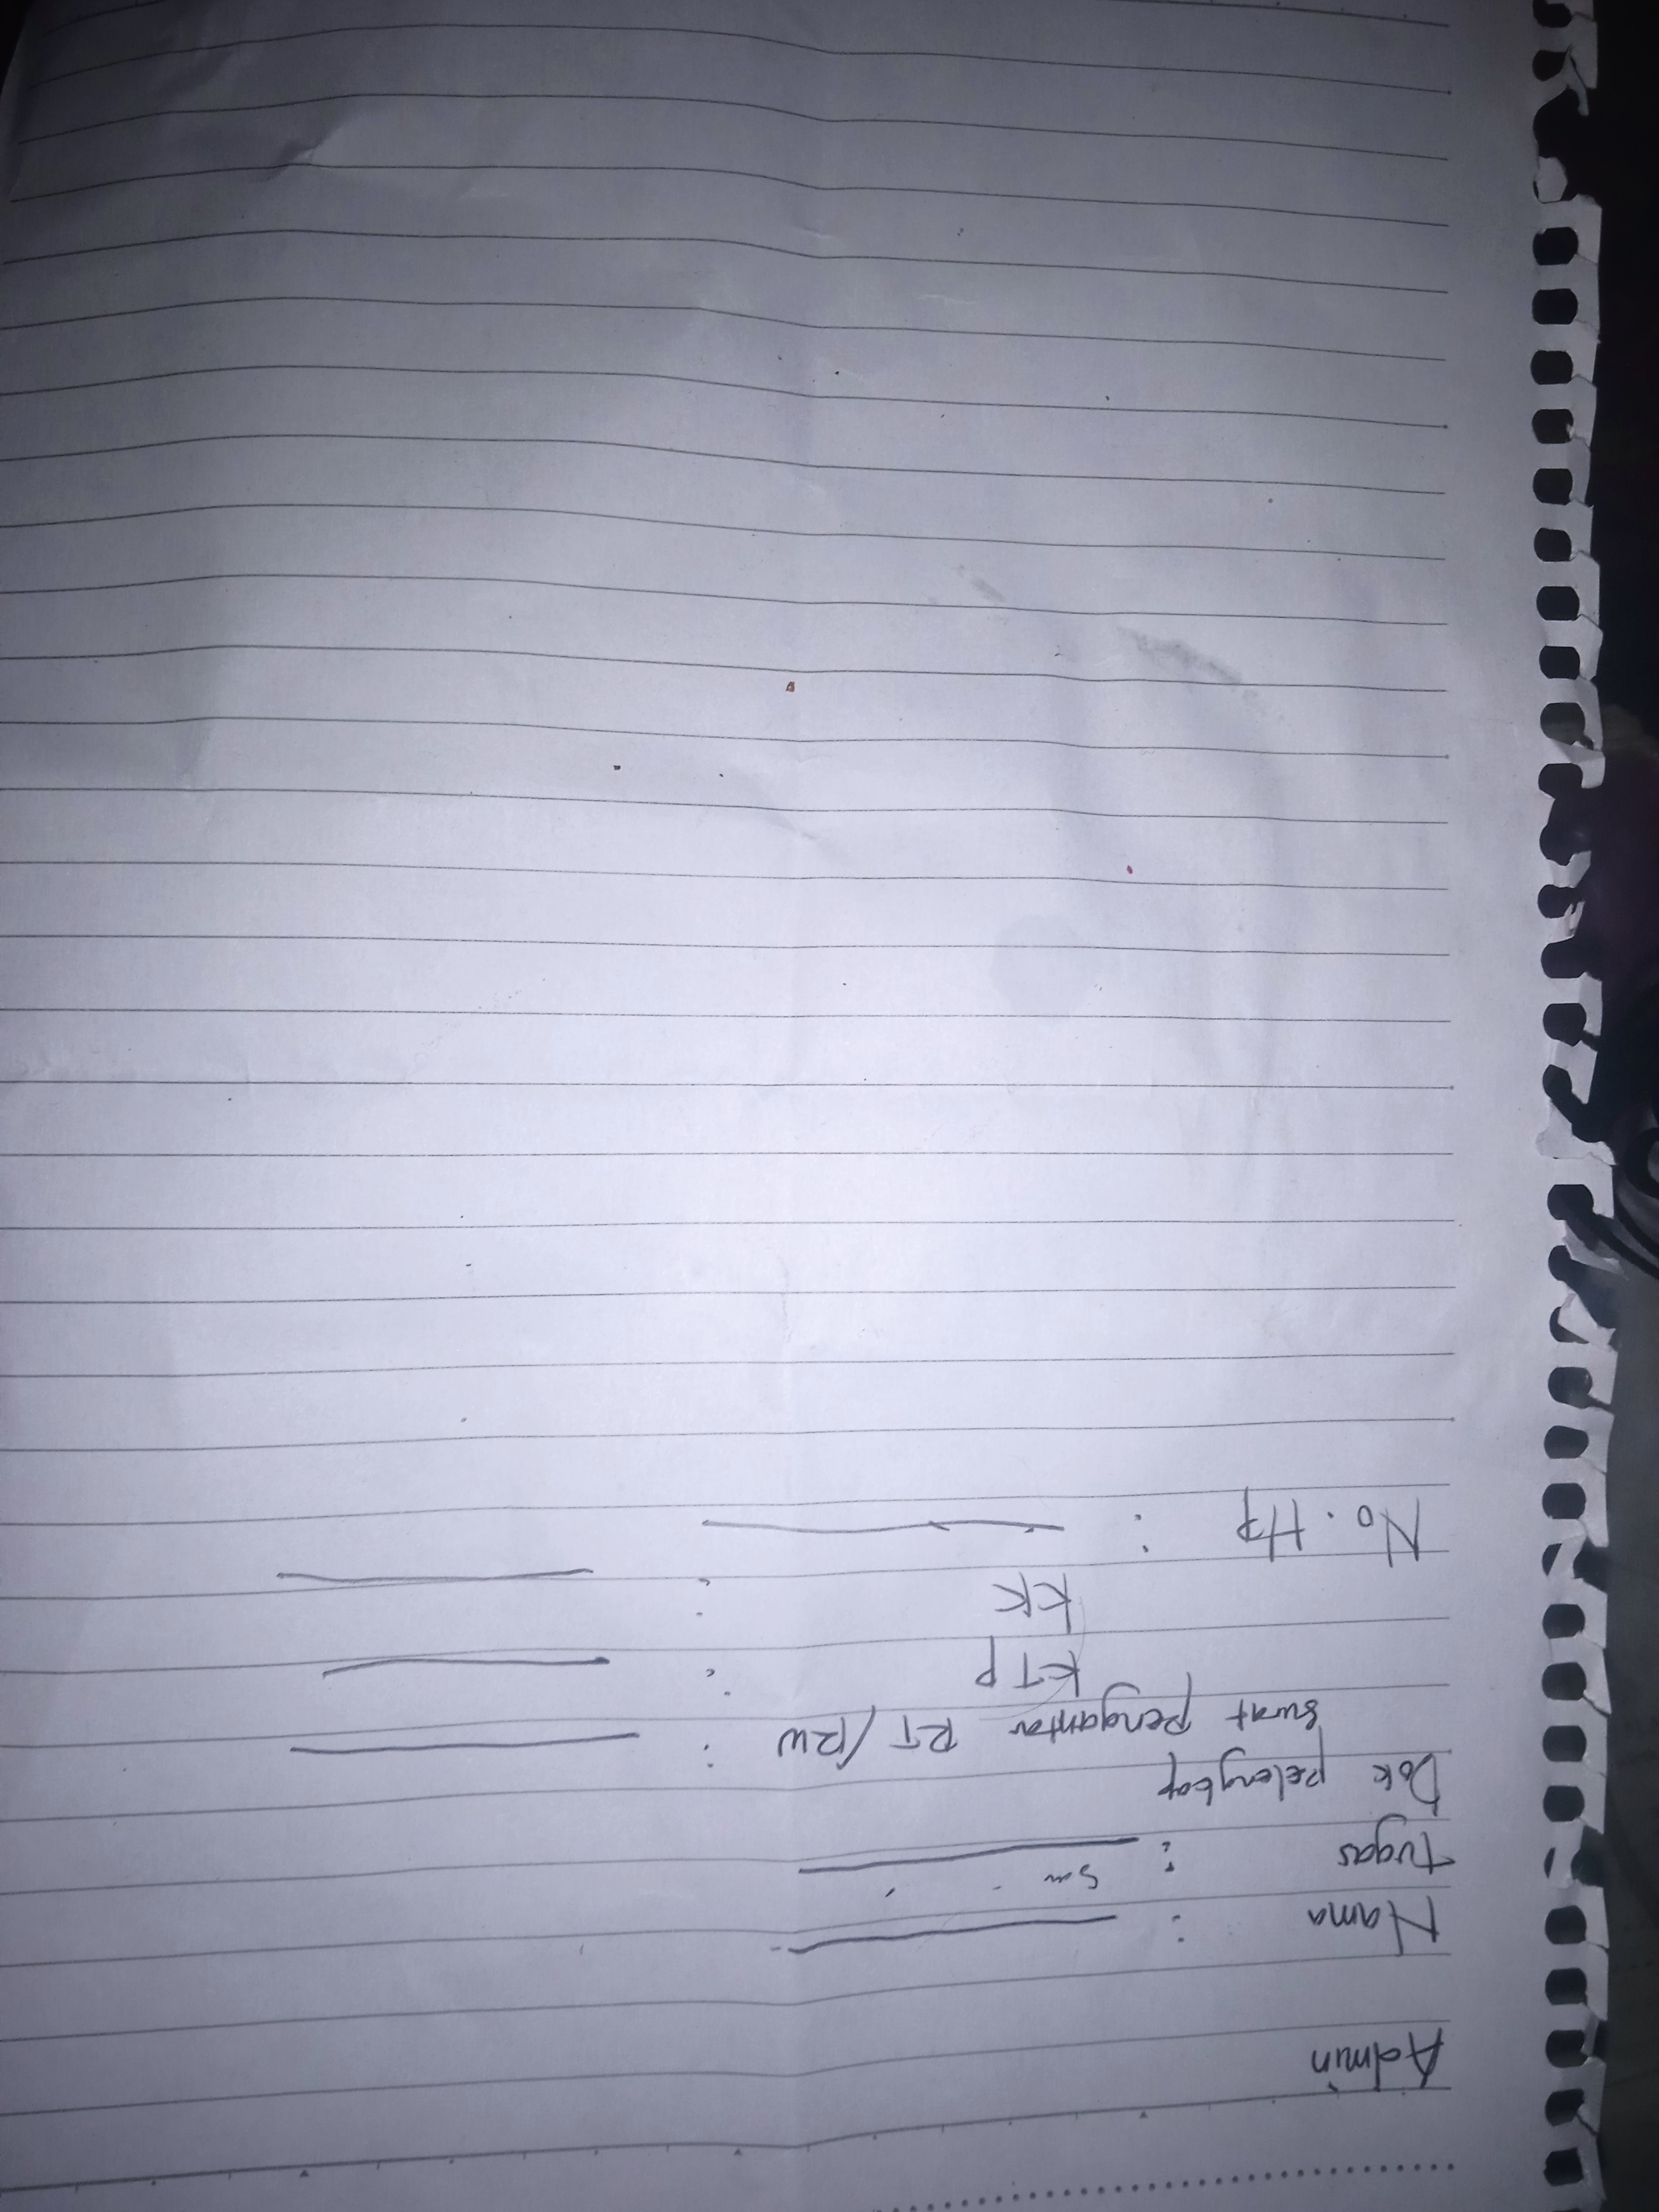 Admin
Nama :
tugas :
Dok pelengkap
Surat pengantar RT/RW :
KTP :
KK :
No. Hp :